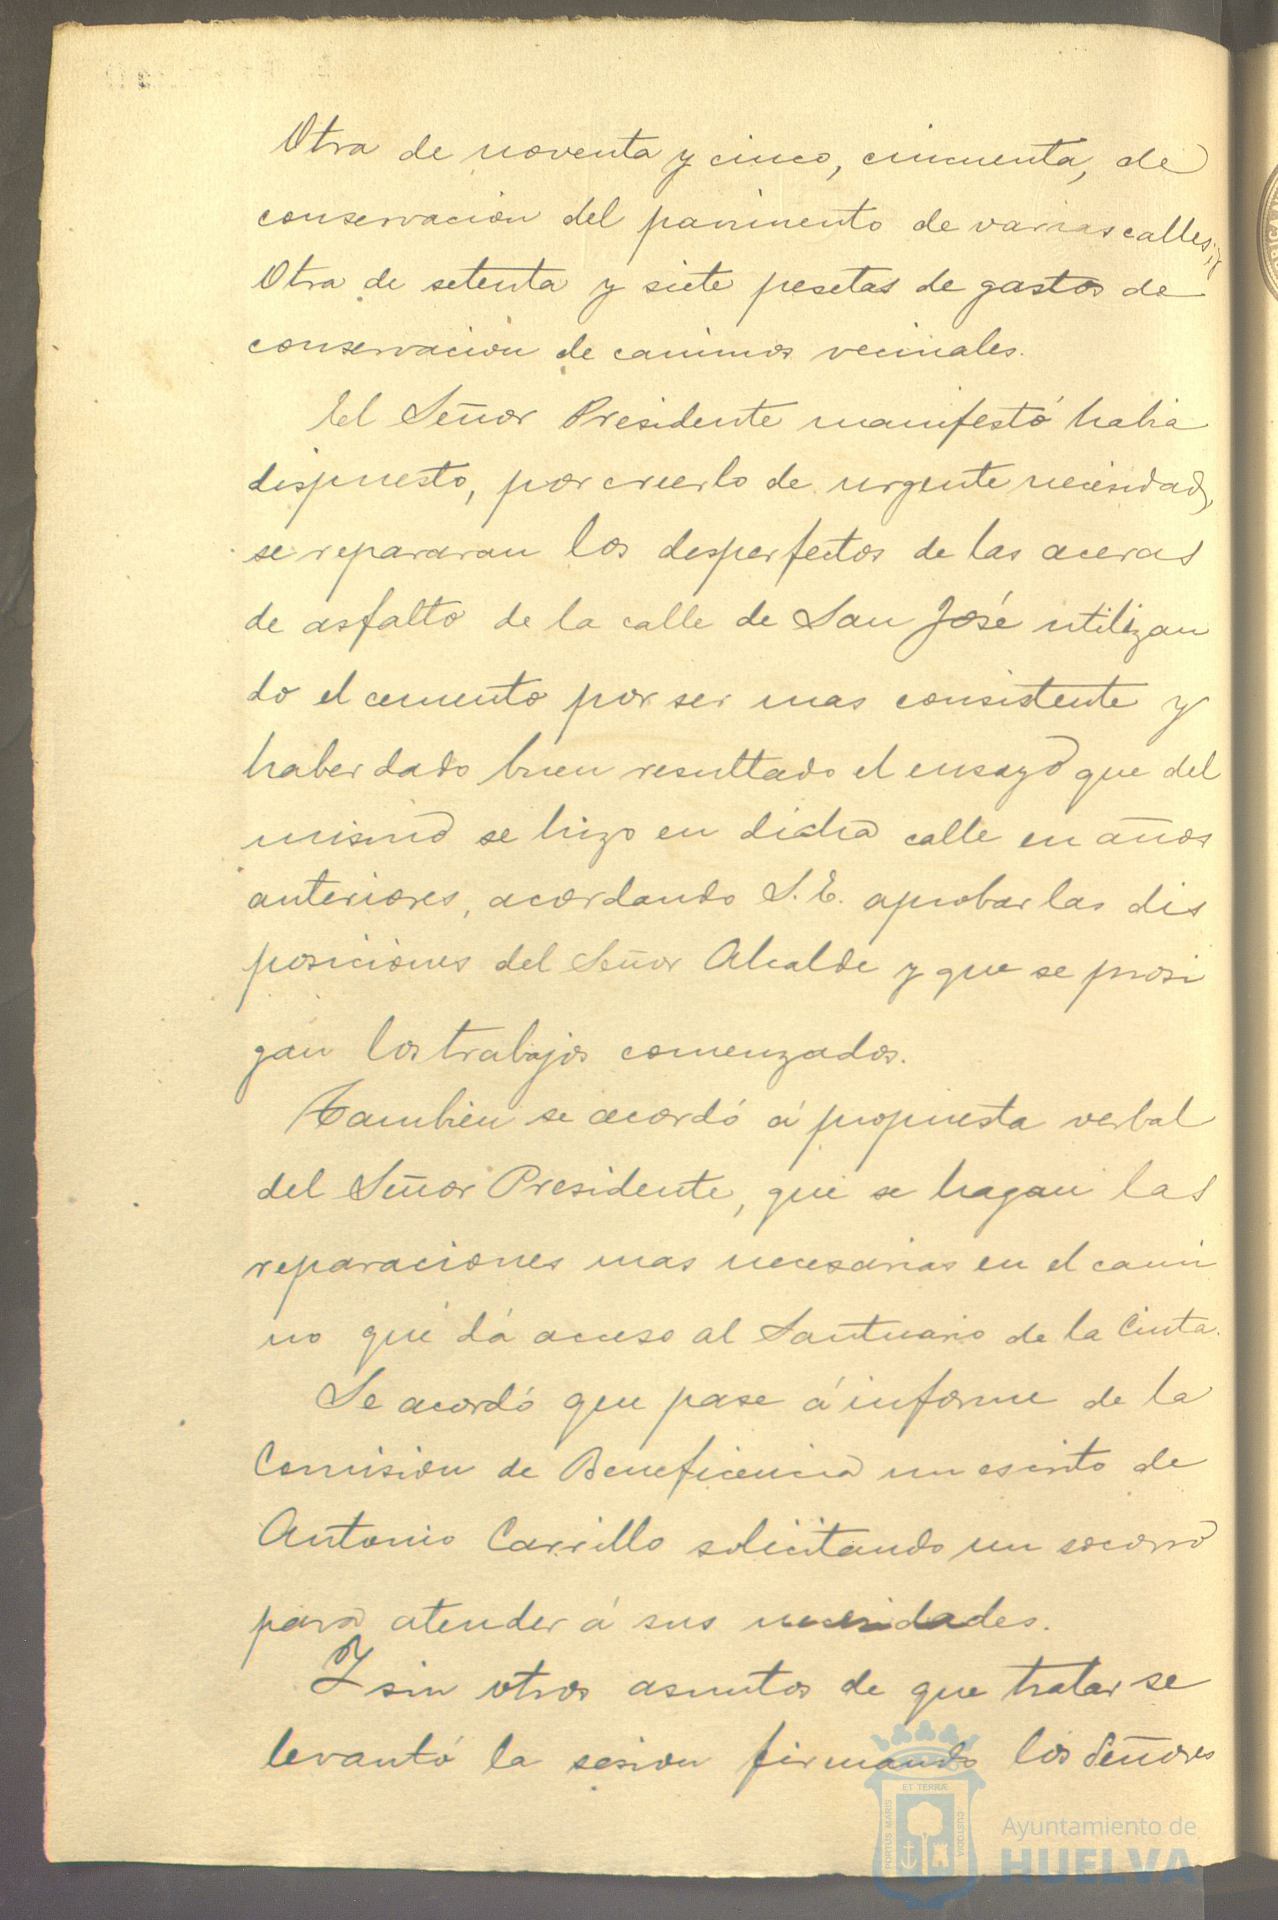 Otra de noventa y cinco, cincuenta, de
conservacion del pavimento de varias calles; y
Otra de setenta y siete pesetas de gastos de
conservacion de caminos vecinales.
El Señor Presidente manifestó habia
dispuesto, por creerlo de urgente necesidad,
se repararan los desperfectos de las aceras
de asfalto de la calle de San José utilizan
do el cemento por ser mas consistente y
haber dado buen resultado el ensayo que del
mismo se hizo en dicha calle en años
anteriores, acordando S. E. aprobar las dis
posiciones del Señor Alcalde y que se prosi
gan los trabajos comenzados.
Tambien se acordó á propuesta verbal
del Señor Presidente, que se hagan las
reparaciones mas necesarias en el cami
no que dá acceso al Santuario de la Cinta.
Se acordó que pase á informe de la
Comision de Beneficencia un escrito de
Antonio Carrillo solicitando un socorro
para atender á sus necesidades.
Y sin otros asuntos de que tratar se
levantó la sesion firmando los Señores
PORTUS MARIS ET TERRÆ CUSTODIA
Ayuntamiento de
HUELVA